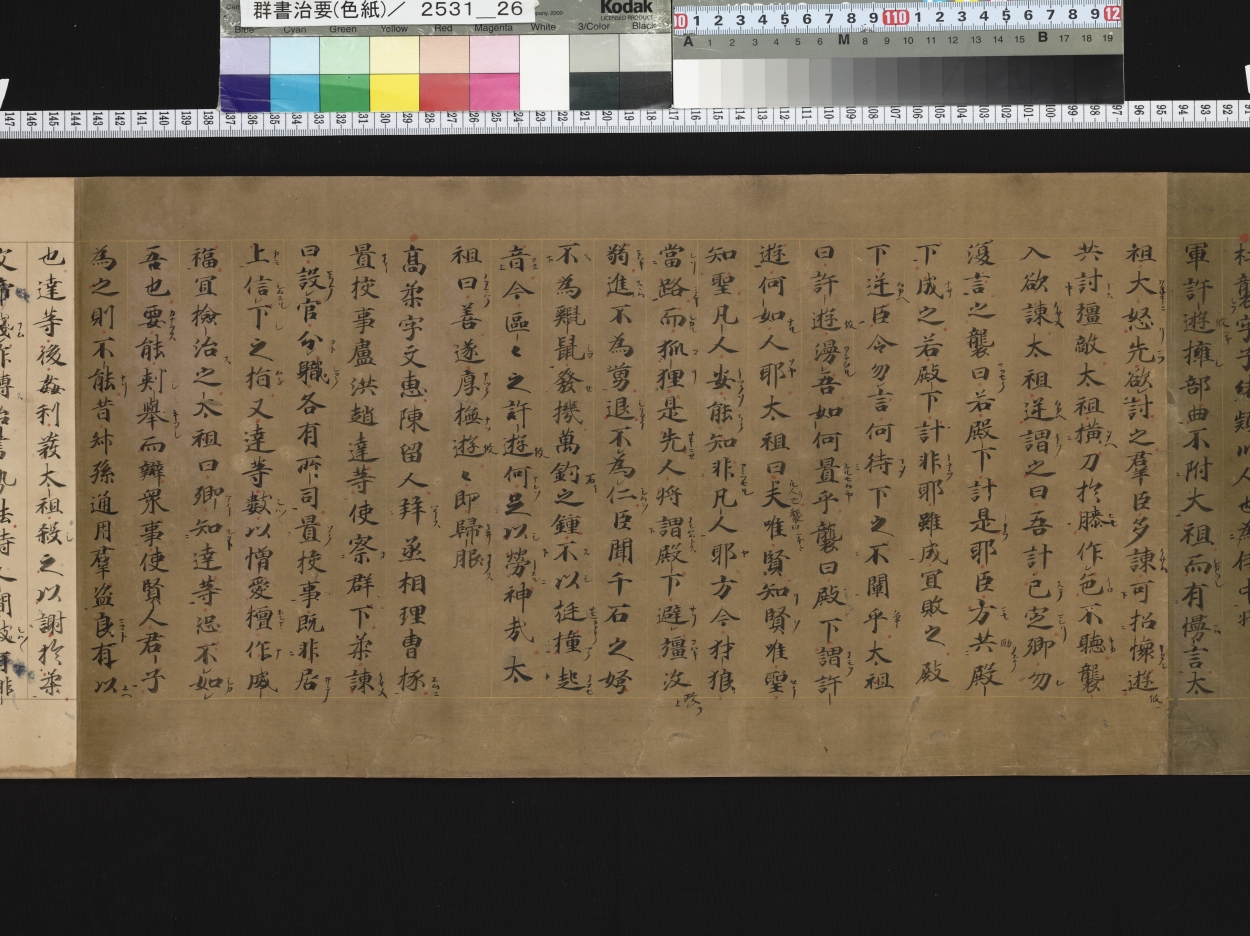 群書治要(色紙)／ 2531__26
Kodak
LICENSED PRODUCT
Blue Cyan Green Yellow Red Magenta White 3/Color Black
軍許遊擁部曲不附大祖而有慢言太
祖大怒先欲討之羣臣多諫可招懐遊
共討彊敵太祖横刀於膝作色不聽襲
入欲諫太祖逆謂之曰吾計已定卿勿
復言之襲曰若殿下計是耶臣方共殿
下成之若殿下計非耶雖成宜敗之殿
下逆臣令勿言何待下之不闡乎太祖
曰許遊慢吾如何置乎襲曰殿下謂許
遊何如人耶太祖曰夫唯賢知賢唯聖
知聖凡人安能知非凡人耶方今犲狼
當路而狐狸是先人将謂殿下避彊攻
弱進不為勇退不為仁臣聞千石之弩
不為鼷鼠發機萬鈞之鍾不以莛撞起
音今區々之許遊何足以勞神武太
祖曰善遂厚撫遊々即歸服
髙柔字文惠陳留人拜丞相理曹掾
置挍事盧洪趙達等使察群下柔諫
曰設官分職各有所司置挍事既非居
上信下之指又達等數以憎愛擅作威
福宜撿治之太祖曰卿知達等恐不如
吾也要能刺舉而辨衆事使賢人君子
為之則不能昔叔孫通用羣盗良有以
也達等後姦利發太祖殺之以謝於柔